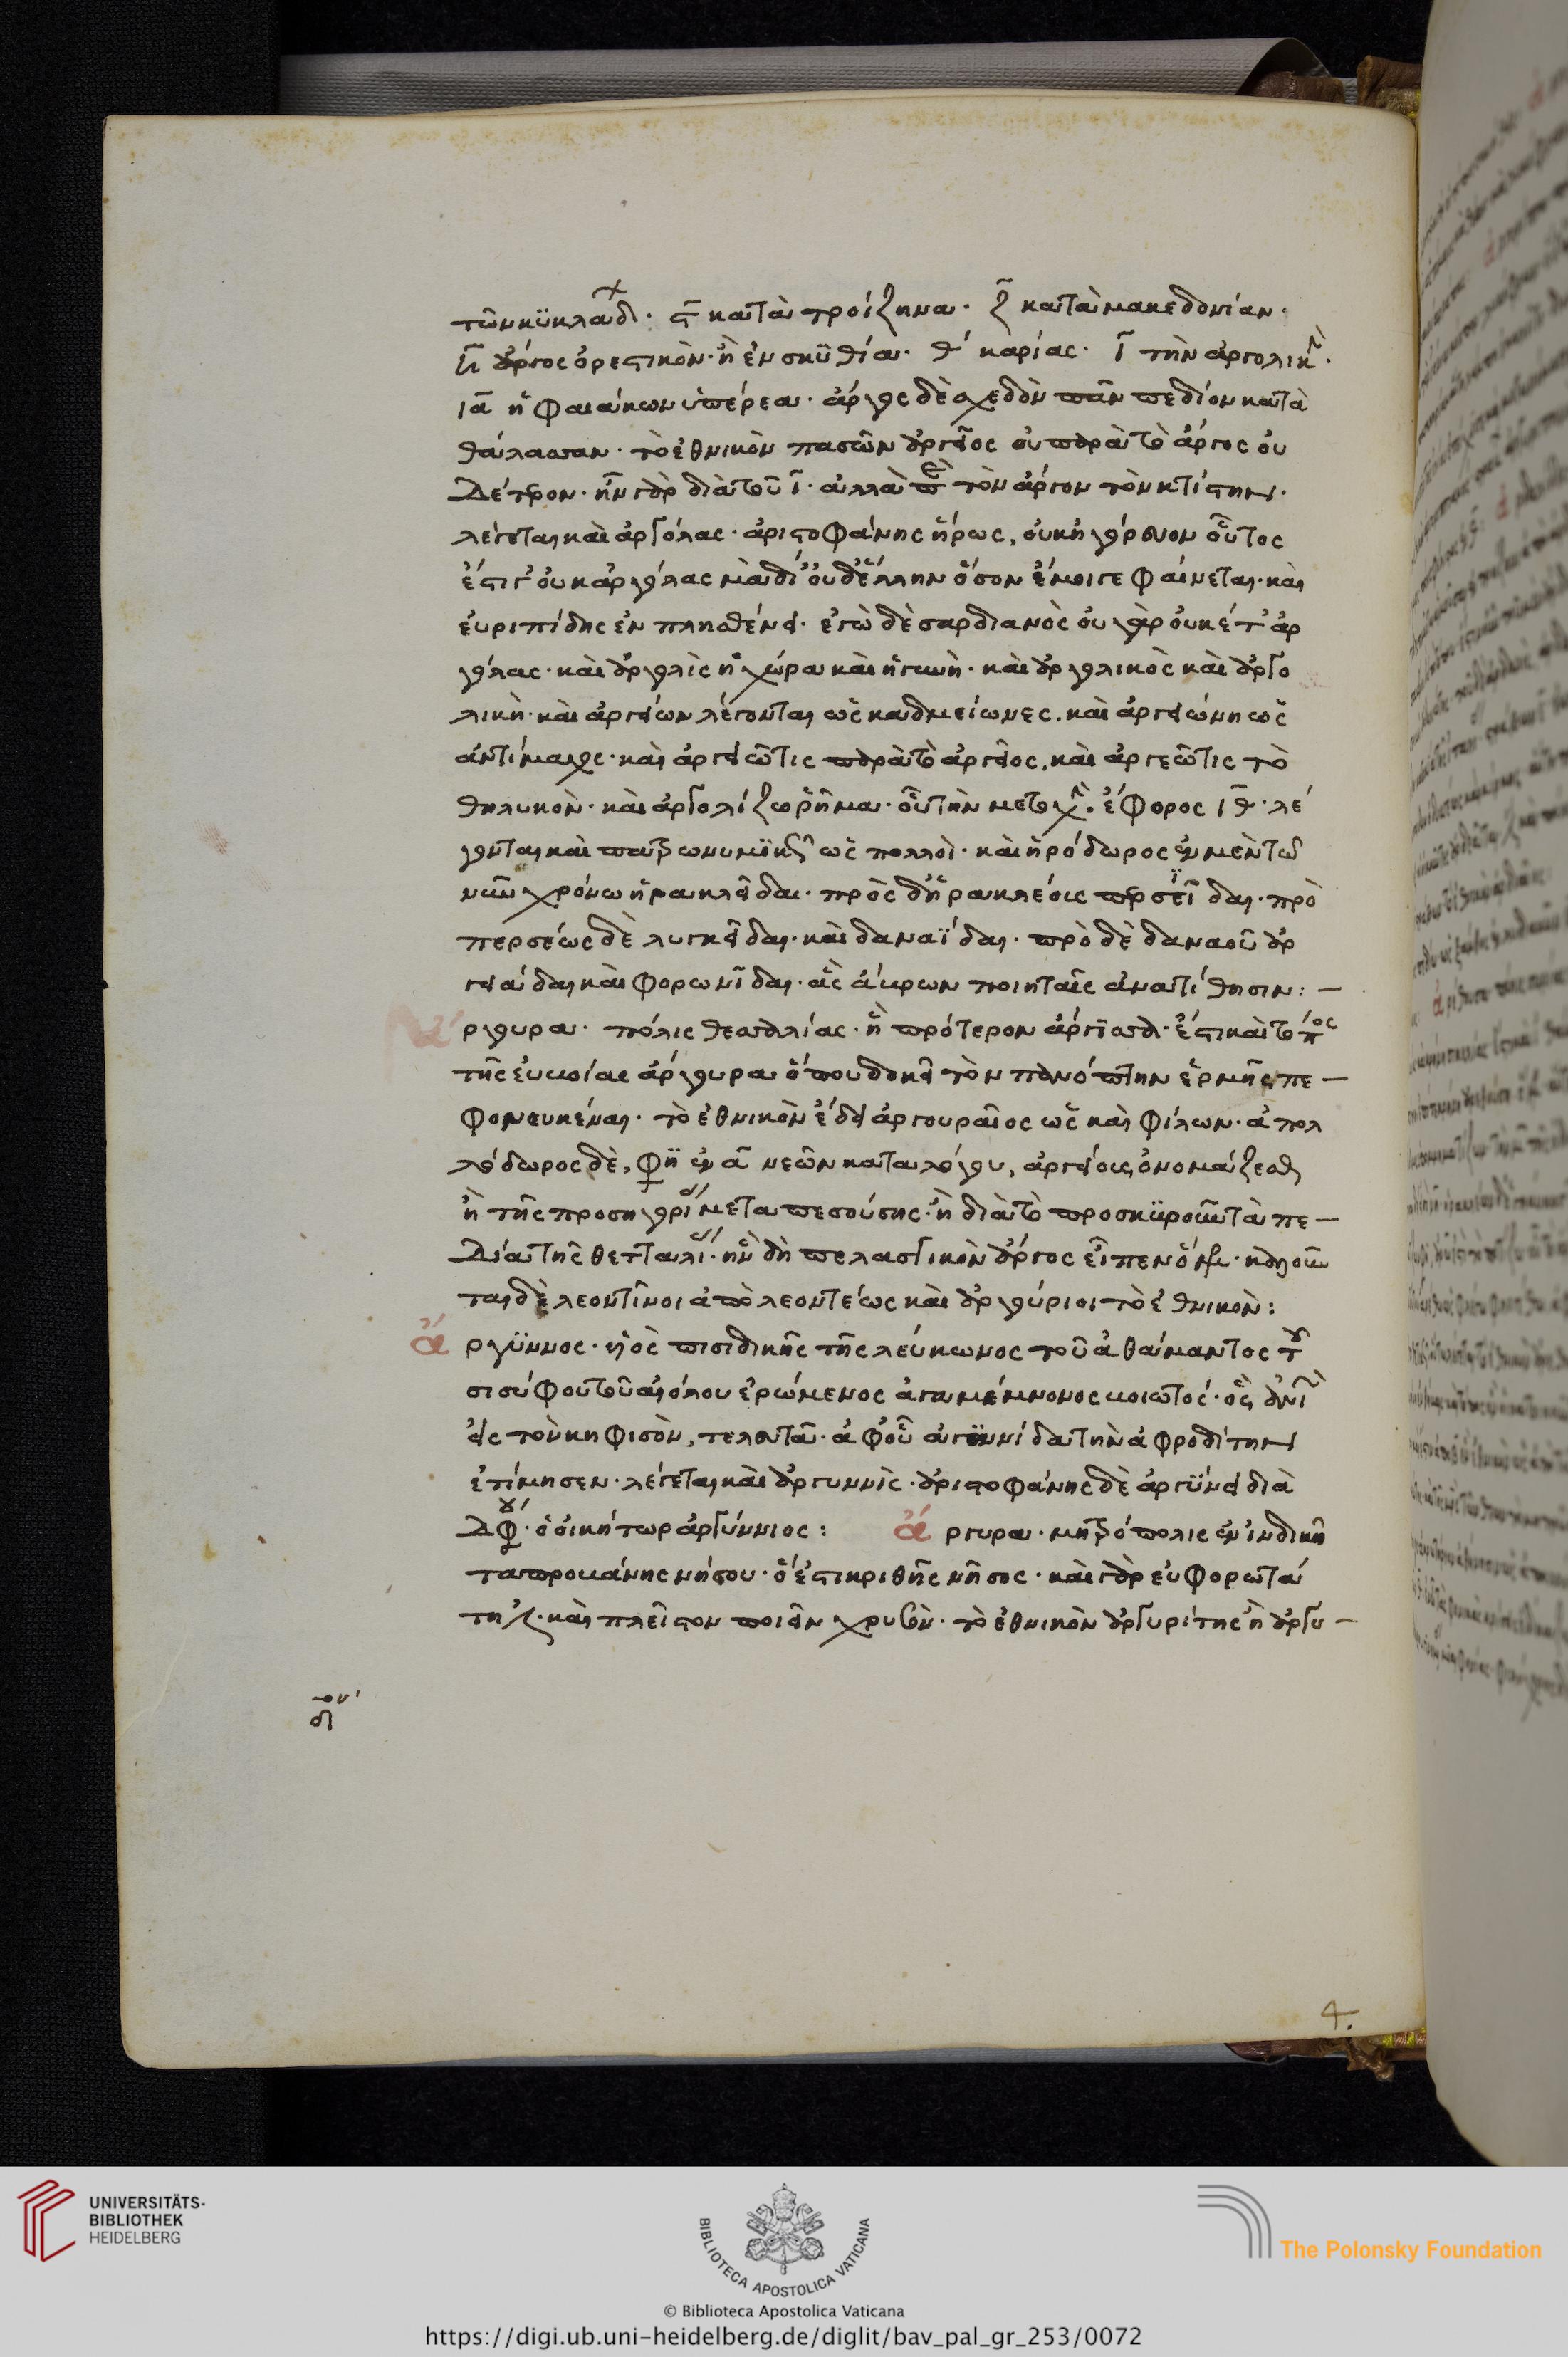 τῶν κϋκλάδ. ϛ κατὰ τροίζηνα. ζ κατὰ μακεδονίαν.
η ἄργος ὀρεστικὸν. ἢ ἐν σκϋθία. θ καρίας. ι τὴν ἀργολικ.
ια ἡ φαιάκων ὑπέρεα. ἄργος δὲ σχεδὸν πᾶν πεδίον κατὰ
θάλασσαν. τὸ ἐθνικὸν πασῶν ἀργεῖος οὐ παρὰ τὸ ἄργος οὐ
δέτερον. ἦν γὰρ διὰ τοῦ ι. ἀλλὰ τὸν ἄργον τὸν κτίστην.
λέγεται καὶ ἀργόλας. ἀριστοφάνης ἥρως, οὐκ ἠγόρευον οὗτος
ἐστί γ' οὐκ ἀργόλας μὰ δί' οὐδ' ἕλλην ὅσον ἔμοιγε φαίνεται. καὶ
εὐριπίδης ἐν πλησθένει. ἐγὼ δὲ σαρδιανὸς οὐ γὰρ οὐκέτ' ἀρ
γόλας. καὶ ἀργολὶς ἡ χώρα καὶ ἡ γυνὴ. καὶ ἀργολικὸς καὶ ἀργο
λικὴ. καὶ ἀργείων λέγονται ὡς καδμείωνες. καὶ ἀργειώνη ὡς
ἀντίμαχος. καὶ ἀργειῶτις παρὰ τὸ ἀργεῖος. καὶ ἀργεῶτις τὸ
θηλυκὸν. καὶ ἀργολίζω ῥῆμα. οὗ τὴν μετοχ. ἔφορος ιθ. λέ
γονται καὶ πατρωνυμϊκ ὡς πολλοὶ. καὶ ἡρόδωρος ἐν μὲν τῶ
νῦν χρόνω ἡρακλεῖδαι. πρὸς δ' ἡρακλέοις περσεῖδαι. πρὸ
περσέως δὲ λυγκεῖδαι. καὶ δαναΐδαι. πρὸ δὲ δαναοῦ ἀρ
γεάδαι καὶ φορωνῖδαι. ἃς ἄκρων ποιηταῖς ἀνατίθησιν: —
ργουρα. πόλις θεσσαλίας. ἡ πρότερον ἄργϊσσα. ἔστι καὶ τόπος
τῆς εὐβοίας ἄργουρα ὅπου δοκεῖ τὸν πανόπτην ἑρμῆς πε —
φονευκέναι. τὸ ἐθνικὸν ἔδει ἀργουραῖος ὡς καὶ φίλων. ἀπολ
λόδωρος δὲ, φη ἐν α νεῶν καταλόγου, ἀργείοις ὀνομάζεσθαι
ἢ τῆς προσηγορίας μεταπεσούσης. ἢ διὰ τὸ προσκϋροῦν τὰ πε —
δία τῆς θετταλίας. ἣν δὴ πελασγικὸν ἄργος εἶπεν ὅμηρος. καλοῦν
ται δὲ λεοντῖνοι ἀπὸ λεοντέως καὶ ἀργούριοι τὸ ἐθνικὸν:
ἀ ργϋννος. υἱὸς πισιδικῆς τῆς λεύκωνος τοῦ ἀθάμαντος τοῦ
σισύφου τοῦ αἰόλου ἐρώμενος ἀγαμέμνονος βοιωτός. ὃς ἀνϊ
εἰς τὸν κηφισὸν, τελευτᾶ. ἀφ' οὗ ἀγϋννίδα τὴν ἀφροδίτην
ἐτίμησεν. λέγεται καὶ ἀργυννὶς. ἀριστοφάνης δὲ ἀργϋνει διὰ
ὁ οἰκήτωρ ἀργύννιος: ἀ ργυρα. μητρόπολις ἐν ἰνδικῆ
ταπροβάνης νήσου. ὅ ἐστι κριθῆς νῆσος. καὶ γὰρ εὐφορωτά
τη. καὶ πλεῖστον ποιεῖν χρυσὸν. τὸ ἐθνικὸν ἀργυρίτης ἢ ἀργυ —
4.
UNIVERSITÄTS-
BIBLIOTHEK
HEIDELBERG
BIBLIOTECA APOSTOLICA VATICANA
The Polonsky Foundation
© Biblioteca Apostolica Vaticana
https://digi.ub.uni-heidelberg.de/diglit/bav_pal_gr_253/0072